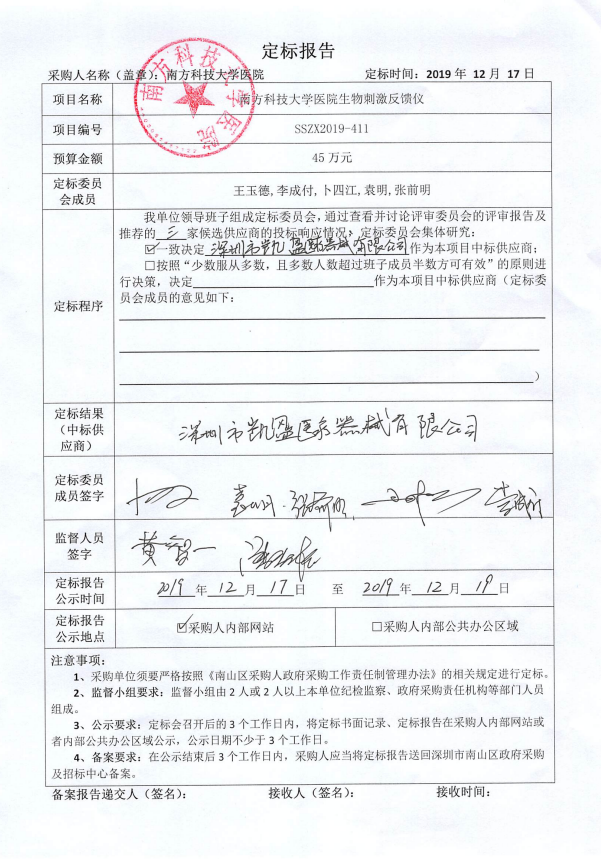 定标报告
采购人名称（盖章）：南方科技大学医院 定标时间：2019 年 12 月 17 日
南方科技大学医院
项目名称 南方科技大学医院生物刺激反馈仪
项目编号 SSZX2019-411
预算金额 45 万元
定标委员会成员 王玉德,李成付,卜四江,袁明,张前明
定标程序
我单位领导班子组成定标委员会，通过查看并讨论评审委员会的评审报告及
推荐的 三 家候选供应商的投标响应情况，定标委员会集体研究：
☑一致决定 深圳市凯盈医疗器械有限公司 作为本项目中标供应商；
□按照“少数服从多数，且多数人数超过班子成员半数方可有效”的原则进
行决策，决定 作为本项目中标供应商（定标委
员会成员的意见如下：
）
定标结果
（中标供
应商）
深圳市凯盈医疗器械有限公司
定标委员
成员签字
袁明 张前明 李成付
监督人员
签字
黄智一
定标报告
公示时间
2019 年 12 月 17 日 至 2019 年 12 月 19 日
定标报告
公示地点
☑采购人内部网站 □采购人内部公共办公区域
注意事项：
1、采购单位须要严格按照《南山区采购人政府采购工作责任制管理办法》的相关规定进行定标。
2、监督小组要求：监督小组由 2 人或 2 人以上本单位纪检监察、政府采购责任机构等部门人员
组成。
3、公示要求：定标会召开后的 3 个工作日内，将定标书面记录、定标报告在采购人内部网站或
者内部公共办公区域公示，公示日期不少于 3 个工作日。
4、备案要求：在公示结束后 3 个工作日内，采购人应当将定标报告送回深圳市南山区政府采购
及招标中心备案。
备案报告递交人（签名）： 接收人（签名）： 接收时间：